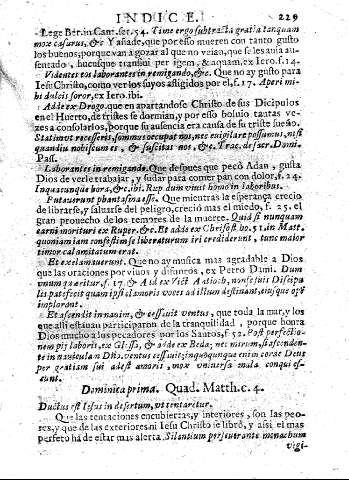 INDICE. 229
Lege Bér. in Cant. ser. 54. Time ergo subtracta gratia tanquam
mox casurus, &c Y añade, que por esso mueren con tanto gusto
los buenos, porque van a gozar al que no veian, que se les avia au-
sentado, hucusque transiui per igem, & aquam, ex Iero. f. 14.
Videntes eos laborantes in remigando, &c. Que no ay gusto para
Iesu Christo, como ver los suyos afligidos por el, f. 17. Aperi mi-
hi dulcis soror, ex Iero. ibi.
Adde ex Drogo. que en apartandose Christo de sus Dicipulos
en el Huerto, de tristes se dormian, y por esso boluio tantas ve-
zes a consolarlos, porque su ausencia era causa de su triste sueño.
Statim vt recesseris, somnus occupat nos, nec vigilare possumus, nisi
quandiu nobiscum es, & suscitas nos, &c. Trac. de sacr. Domi.
Pass.
Laborantes in remigando. Que despues que pecò Adan, gusta
Dios de verle trabajar, y sudar para comer pan con dolor, f. 24.
Inquacunque hora, &c. ibi. Rup. dum viuit homo in laboribus.
Putauerunt phantasma esse. Que mientras la esperança crecio
de librarse, y saluarse del peligro, creció mas el miedo, f. 25. el
gran prouecho de los temores de la muerte. Quid si nunquam
earni morituri ex Ruper. &c. Et adds ex Chrisost ho. 51. in Matt.
quoniam iam confestim se liberaturum iri crediderunt, tunc maior
timor calamitatum erat.
Et exclamauerunt. Que no ay musica mas agradable a Dios
que las oraciones por viuos y difuntos, ex Petro Dami. Dum
vnum quæritur, f. 17. & Aid ex Vict. Antioch, non fuit Discipu
lis patefecit quam ipsi clamoris voces ad illum destinant, eiusque opē
implorent.
Et ascendit in nauim, & cessauit ventus, que toda la mar, y los
que alli estauan participaron de la tranquilidad, porque honra
Dios mucho a los pecadores por los Santos, f. 52. Post perfectio-
nem pij laboris, ex Glossa, & adde ex Beda; nec mirum, si ascenden-
te in nauicula Dño. ventus cessauit; in quocunque enim corde Deus
per gratiam sui adest amoris, mox vniuersa mala conqui es-
cunt.
Dominica prima. Quad. Matth. c. 4.
Ductus est Iesus in desertum, vt tentaretur.
Que las tentaciones encubiertas, y interiores, son las peo-
res, y que de las exteriores ni Iesu Christo se librò, y assi el mas
perfeto há de estar mas alerta. Silantium perseuerante monachum
vigi-